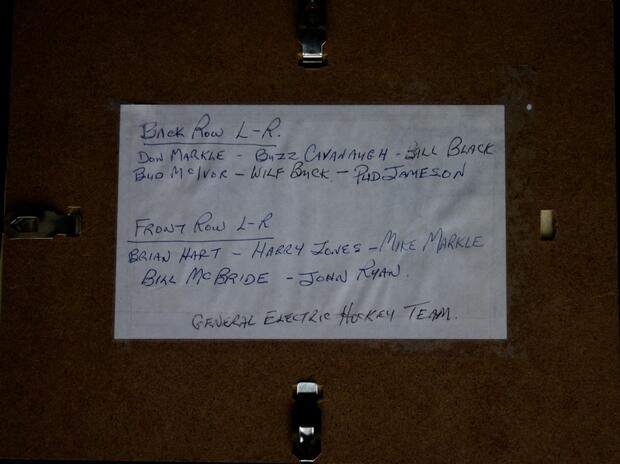 BACK ROW L-R.
DON MARKLE - BUZZ CAVANAUGH - BILL BLACK
BUD McIVOR - WILF BUCK - PUD JAMESON
FRONT ROW L-R
BRIAN HART - HARRY JONES - MIKE MARKLE
BILL McBRIDE - JOHN RYAN.
GENERAL ELECTRIC HOCKEY TEAM.